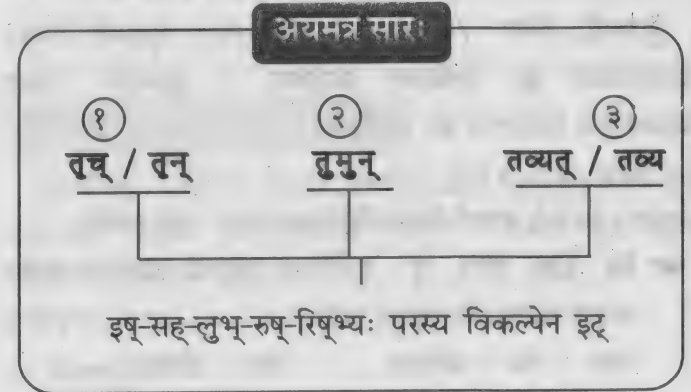 अयमत्र सारः
१ २ ३
तृच् / तृन् तुमुन् तव्यत् / तव्य
इष्-सह्-लुभ्-रुष्-रिष्भ्यः परस्य विकल्पेन इट्